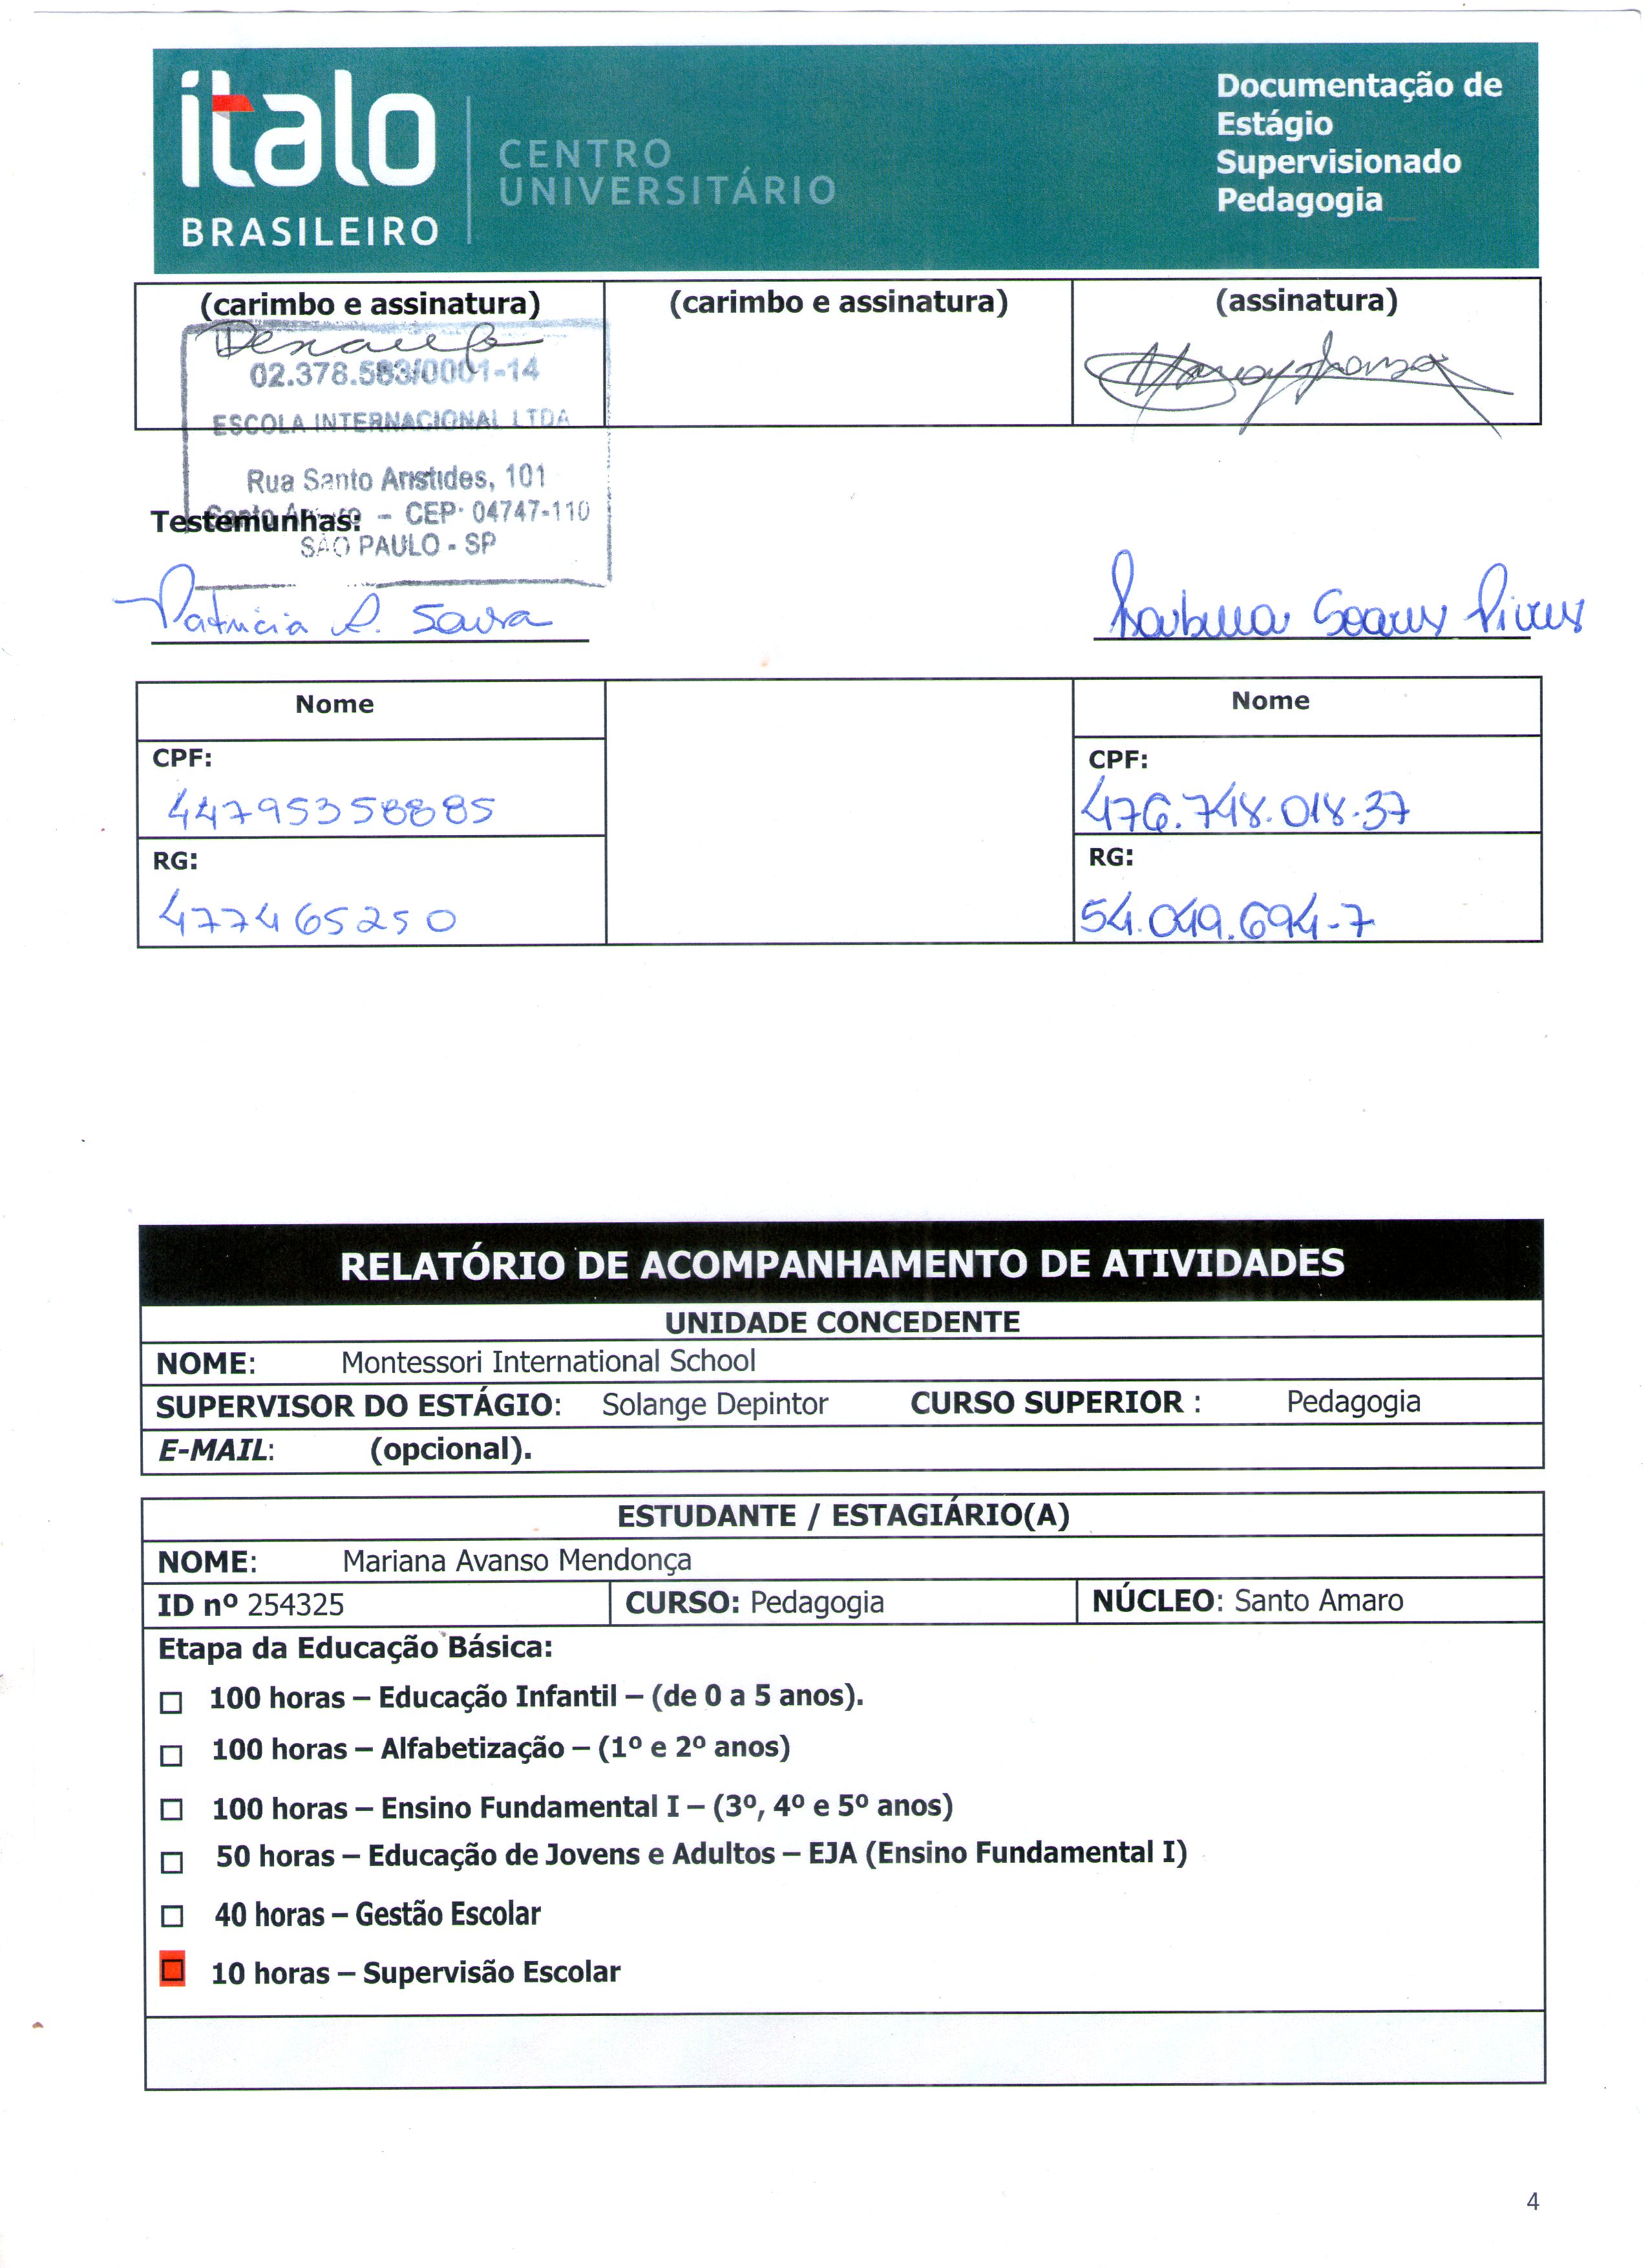 ítalo
BRASILEIRO
CENTRO
UNIVERSITÁRIO
Documentação de
Estágio
Supervisionado
Pedagogia
(carimbo e assinatura) (carimbo e assinatura) (assinatura)
02.378.583/0001-14
ESCOLA INTERNACIONAL LTDA
Rua Santo Aristides, 101
Santo Amaro - CEP 04747-110
SÃO PAULO - SP
Testemunhas:
Patricia R. Soares Pires
Nome Nome
CPF: CPF:
44795358885 476.748.018-37
RG: RG:
477465250 54.049.694-7
RELATÓRIO DE ACOMPANHAMENTO DE ATIVIDADES
UNIDADE CONCEDENTE
NOME: Montessori International School
SUPERVISOR DO ESTÁGIO: Solange Depintor CURSO SUPERIOR : Pedagogia
E-MAIL: (opcional).
ESTUDANTE / ESTAGIÁRIO(A)
NOME: Mariana Avanso Mendonça
ID nº 254325 CURSO: Pedagogia NÚCLEO: Santo Amaro
Etapa da Educação Básica:
100 horas – Educação Infantil – (de 0 a 5 anos).
100 horas – Alfabetização – (1º e 2º anos)
100 horas – Ensino Fundamental I – (3º, 4º e 5º anos)
50 horas – Educação de Jovens e Adultos – EJA (Ensino Fundamental I)
40 horas – Gestão Escolar
10 horas – Supervisão Escolar
4